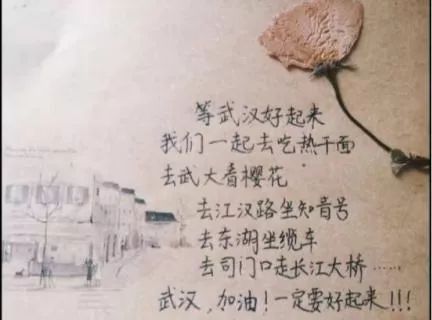 等武汉好起来
我们一起去吃热干面
去武大看樱花
去江汉路坐知音号
去东湖坐缆车
去司门口走长江大桥……
武汉,加油!一定要好起来!!!